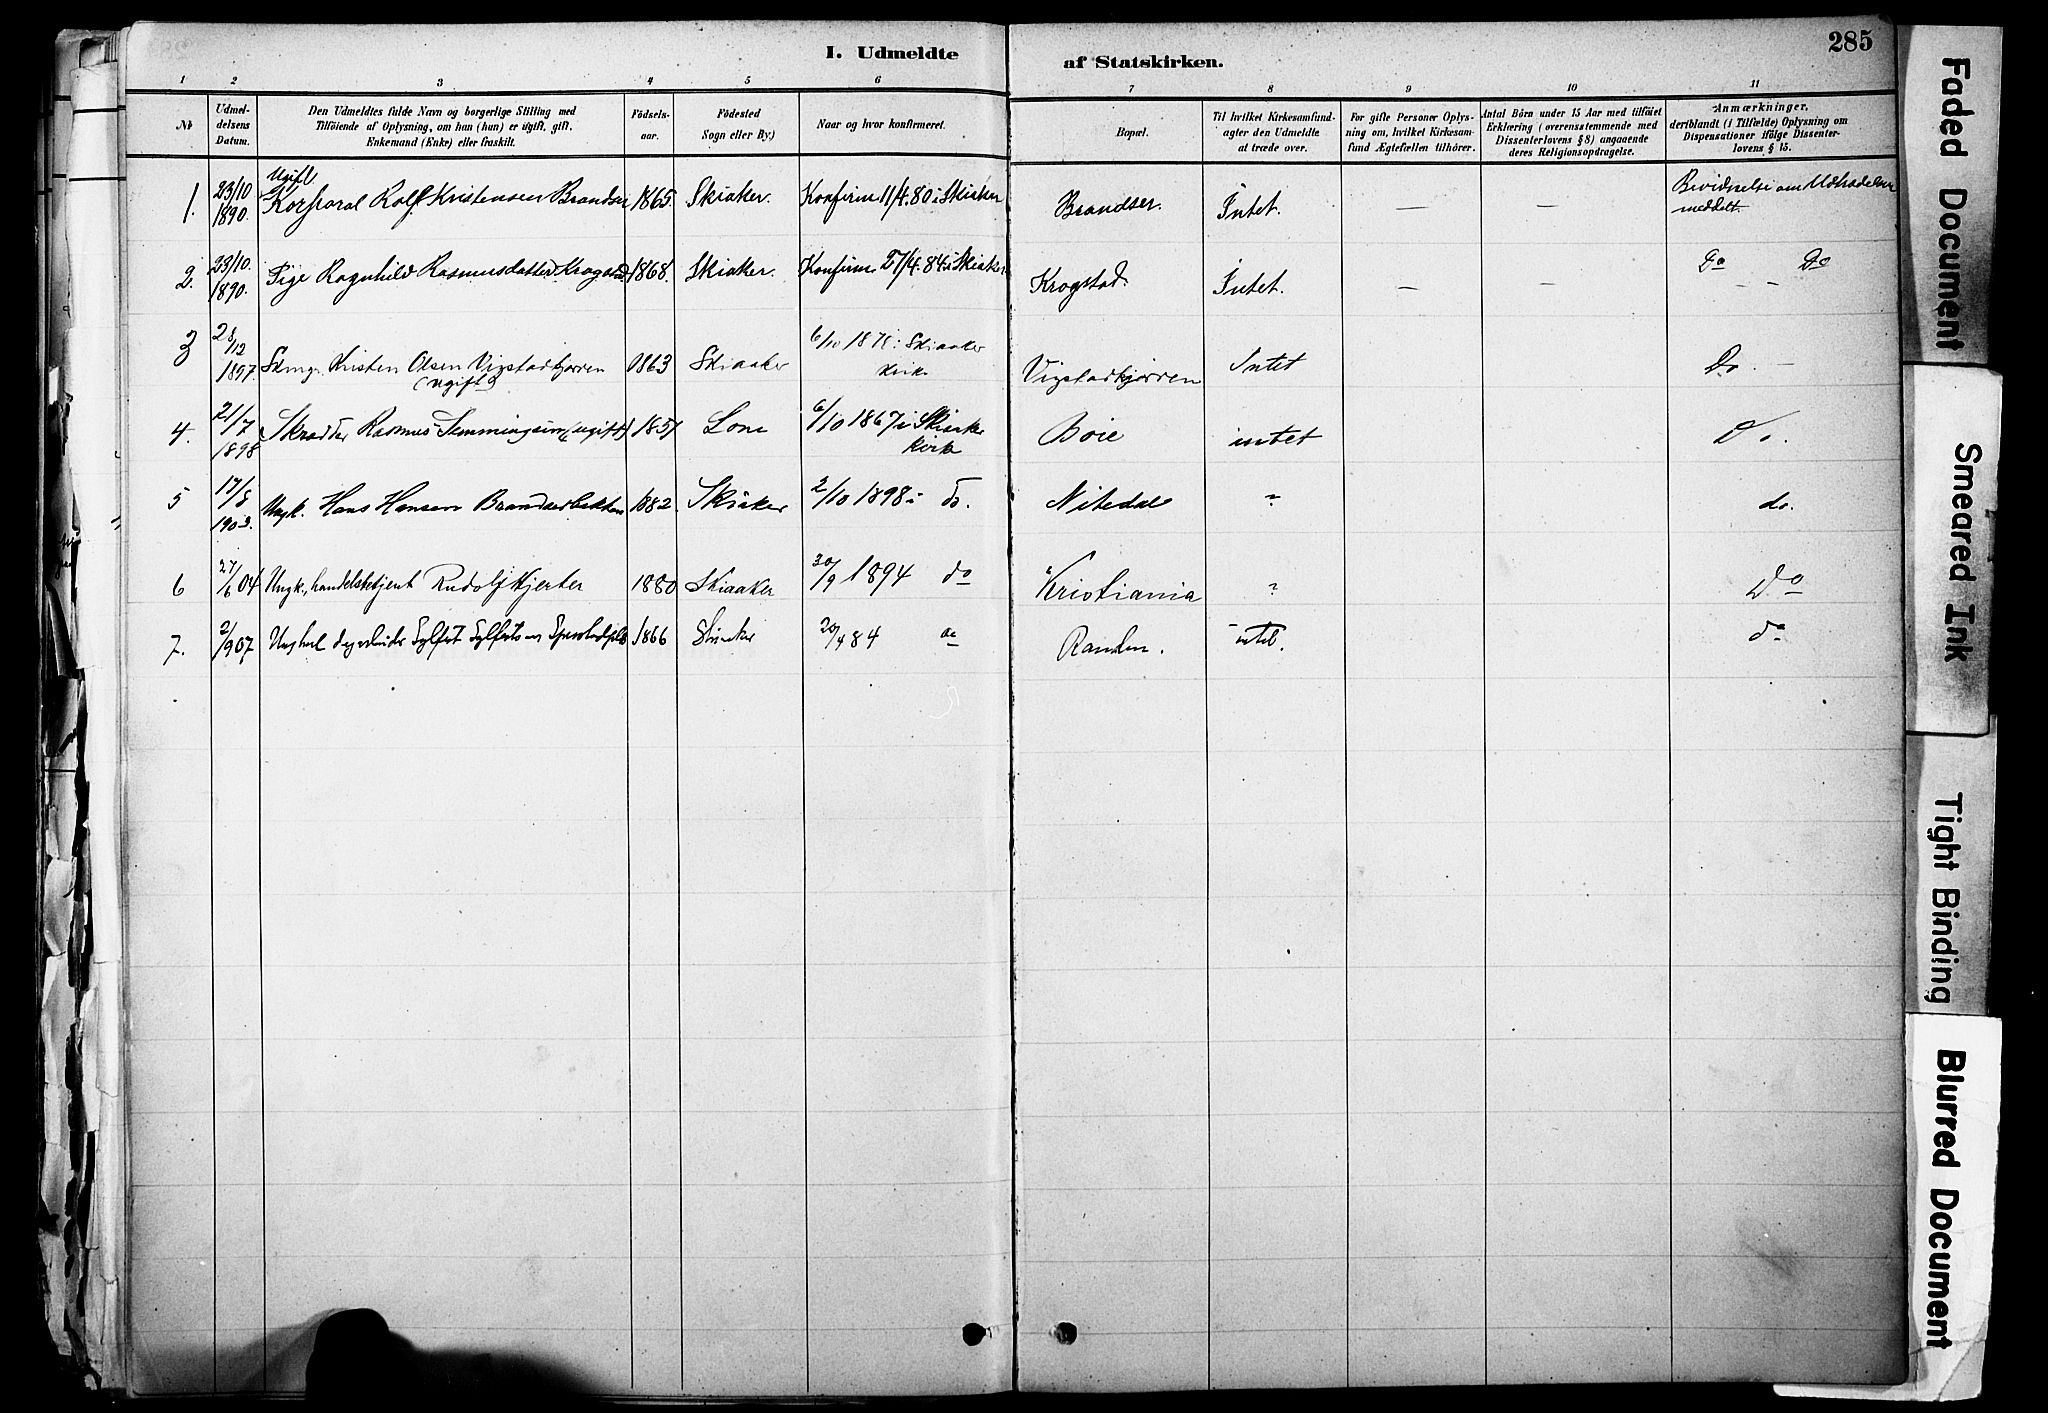 I. Udmeldte af Statskirken.
285
1 2 3 4 5 6 7 8 9 10 11
№
Udmel-
delsens
Datum.
Den Udmeldtes fulde Navn og borgerlige Stilling med
Tilföiende af Oplysning, om han (hun) er ugift, gift,
Enkemand (Enke) eller fraskilt.
Födsels-
aar.
Födested
Sogn eller By)
Naar og hvor konfirmeret.
Bopæl.
Til hvilket Kirkesamfund
agter den Udmeldte
at træde over.
For gifte Personer Oplys-
ning om, hvilket Kirkesam-
fund Ægtefællen tilhörer.
Antal Börn under 15 Aar med tilföiet
Erklæring (overensstemmende med
Dissenterlovens § 8) angaaende
deres Religionsopdragelse.
Anmærkninger,
deriblandt (i Tilfælde) Oplysning om
Dispensationer ifölge Dissenter-
lovens § 15.
Ugift
1. 23/10 1890. Korporal Rolf Kristensen Brandser 1865. Skiaker. Konfirm 11/4.80 i Skiaker Brandser. Intet. — — Bevidnelse om Udtrædelse
meddelt.
2. 23/10 1890. Pige Ragnhild Rasmusdatter Krogstad 1868. Skiaker. Konfirm. 27/4.84 i Skiaker Krogstad. Intet. — — Do Do
3 28/12 1897. Kristen Olsen Vigstadkjørren 1863 Skiaaker 6/10 1878 i Skiaaker Vigstadkjørren Intet Do. —
(ugift) Kirke
4. 21/7 1898 Skrædder Rasmus Hemmingsen (ugift) 1851 Lom 6/10 1867 i Skiaker Böie intet Do.
Kirke
5 17/8 1903. Ungk. Hans Hansen Brandserbakken 1882 Skiaker 2/10 1898 i do. Nitedal ? do.
6 27/6 04 Ungk., handelsbetjent Rudolf Hjerter 1880 Skiaaker 30/9 1894 do Kristiania ? Do
7. 2/9 07 Sylfest Sylfestsen 1866 Skiaker 20/4 84 do Randen. intet. do
Faded Document
Smeared Ink
Tight Binding
Blurred Document